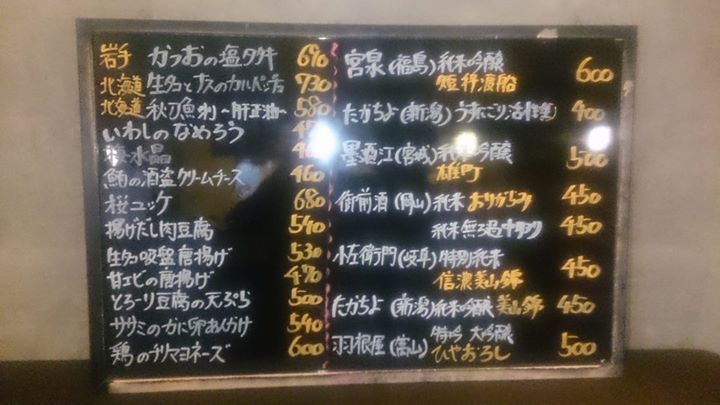 岩手 かつおの塩タタキ 690
北海道 生タコとナスのカルパッチョ 730
北海道 秋刀魚刺 〜肝正油〜 580
いわしのなめろう
水晶
鮪の酒盗クリームチーズ 460
桜ユッケ 680
揚げだし肉豆腐 540
生タコ吸盤唐揚げ 530
甘エビの唐揚げ 470
とろーり豆腐の天ぷら 500
ササミのかに卵あんかけ 540
鶏のチリマヨネーズ 600
宮泉(福島)純米吟醸 600
短稈渡船
たかちよ(新潟)うすにごり 活性生 400
墨廼江(宮城)純米吟醸 500
雄町
御前酒(岡山)純米 おりがらみ 450
純米無ろ過 450
小左衛門(岐阜)特別純米 450
信濃美山錦
たかちよ(新潟)純米吟醸 美山錦 450
羽根屋(富山)特吟 大吟醸 500
ひやおろし